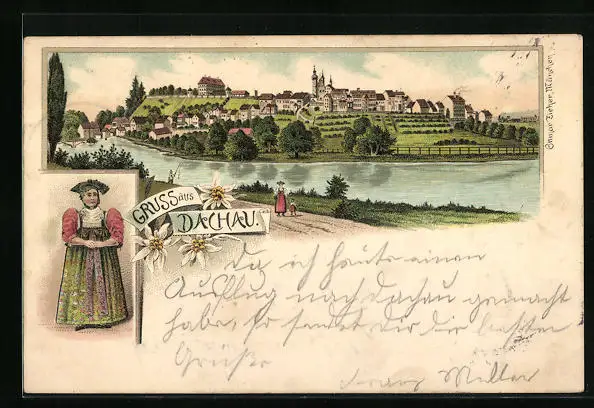 Ottmar Zieher, München.
GRUSS aus
DACHAU.
Da ich heute einen
Ausflug nach Dachau gemacht
habe, so sendet Dir die besten
Grüße
Franz Müller